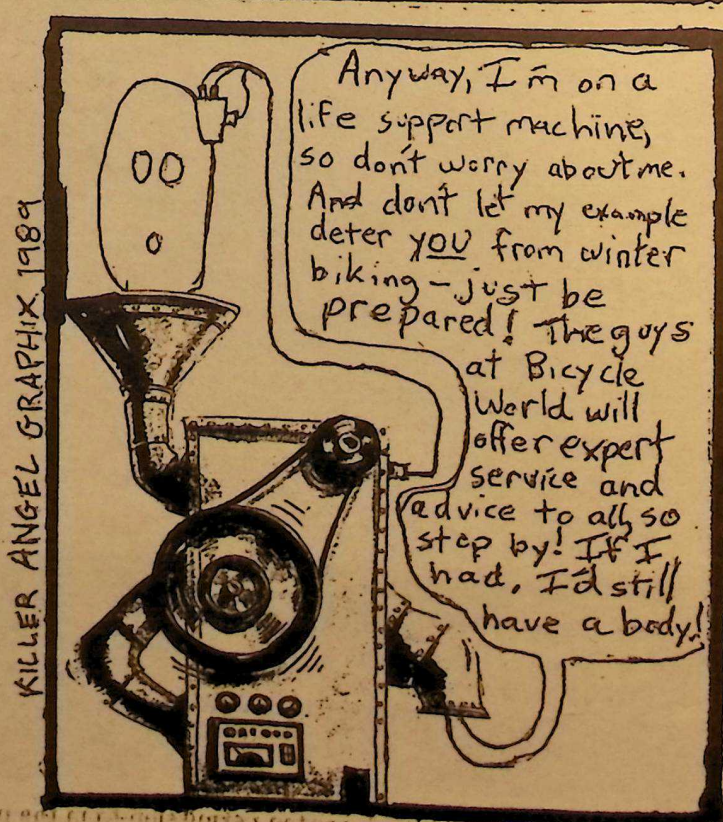 KILLER ANGEL GRAPHIX 1989
Anyway, I'm on a
life support machine,
so don't worry about me.
And don't let my example
deter you from winter
biking - just be
prepared! The guys
at Bicycle
World will
offer expert
service and
advice to all, so
stop by! If I
had, I'd still
have a body!